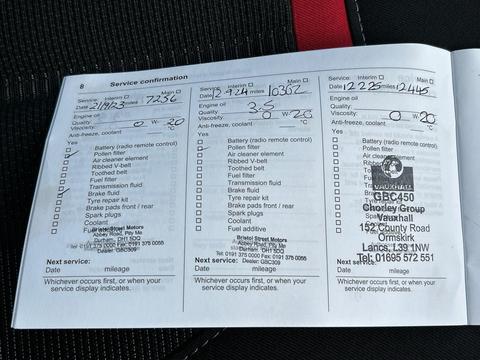 8
Service confirmation
Service: Interim ☐ Main ☐
Date 21/9/23 miles 7256
Engine oil
Quality:
Viscosity: 0 W- 20
Anti-freeze, coolant °C
Yes
☐ Battery (radio remote control)
☐ Pollen filter
☐ Air cleaner element
☐ Ribbed V-belt
☐ Toothed belt
☐ Fuel filter
☐ Transmission fluid
☐ Brake fluid
☐ Tyre repair kit
☐ Brake pads front / rear
☐ Spark plugs
☐ Coolant
☐ Fuel
Bristol Street Motors
Abbey Road, Pity Me
Durham, DH1 5DQ
Tel: 0191 375 0000 Fax: 0191 375 0055
Dealer: GBC309
Next service:
Date mileage
Whichever occurs first, or when your
service display indicates.
Service: Interim ☐ Main ☐
Date 12.9.24 miles 10302
Engine oil
Quality: 3.5
Viscosity: 0 W- 20
Anti-freeze, coolant °C
Yes
☐ Battery (radio remote control)
☐ Pollen filter
☐ Air cleaner element
☐ Ribbed V-belt
☐ Toothed belt
☐ Fuel filter
☐ Transmission fluid
☐ Brake fluid
☐ Tyre repair kit
☐ Brake pads front / rear
☐ Spark plugs
☐ Coolant
☐ Fuel additive
Bristol Street Motors
Abbey Road, Pity Me
Durham, DH1 5DQ
Tel: 0191 375 0000 Fax: 0191 375 0055
Dealer: GBC309
Next service:
Date mileage
Whichever occurs first, or when your
service display indicates.
Service: Interim ☐ Main ☐
Date 12 2 25 miles 12445
Engine oil
Quality:
Viscosity: 0 W- 20
Anti-freeze, coolant °C
Yes
☐ Battery (radio remote control)
VAUXHALL
GBC450
Chorley Group
Vauxhall
152 County Road
Ormskirk
Lancs, L39 1NW
Tel: 01695 572 551
Next service:
Date mileage
Whichever occurs first, or when your
service display indicates.